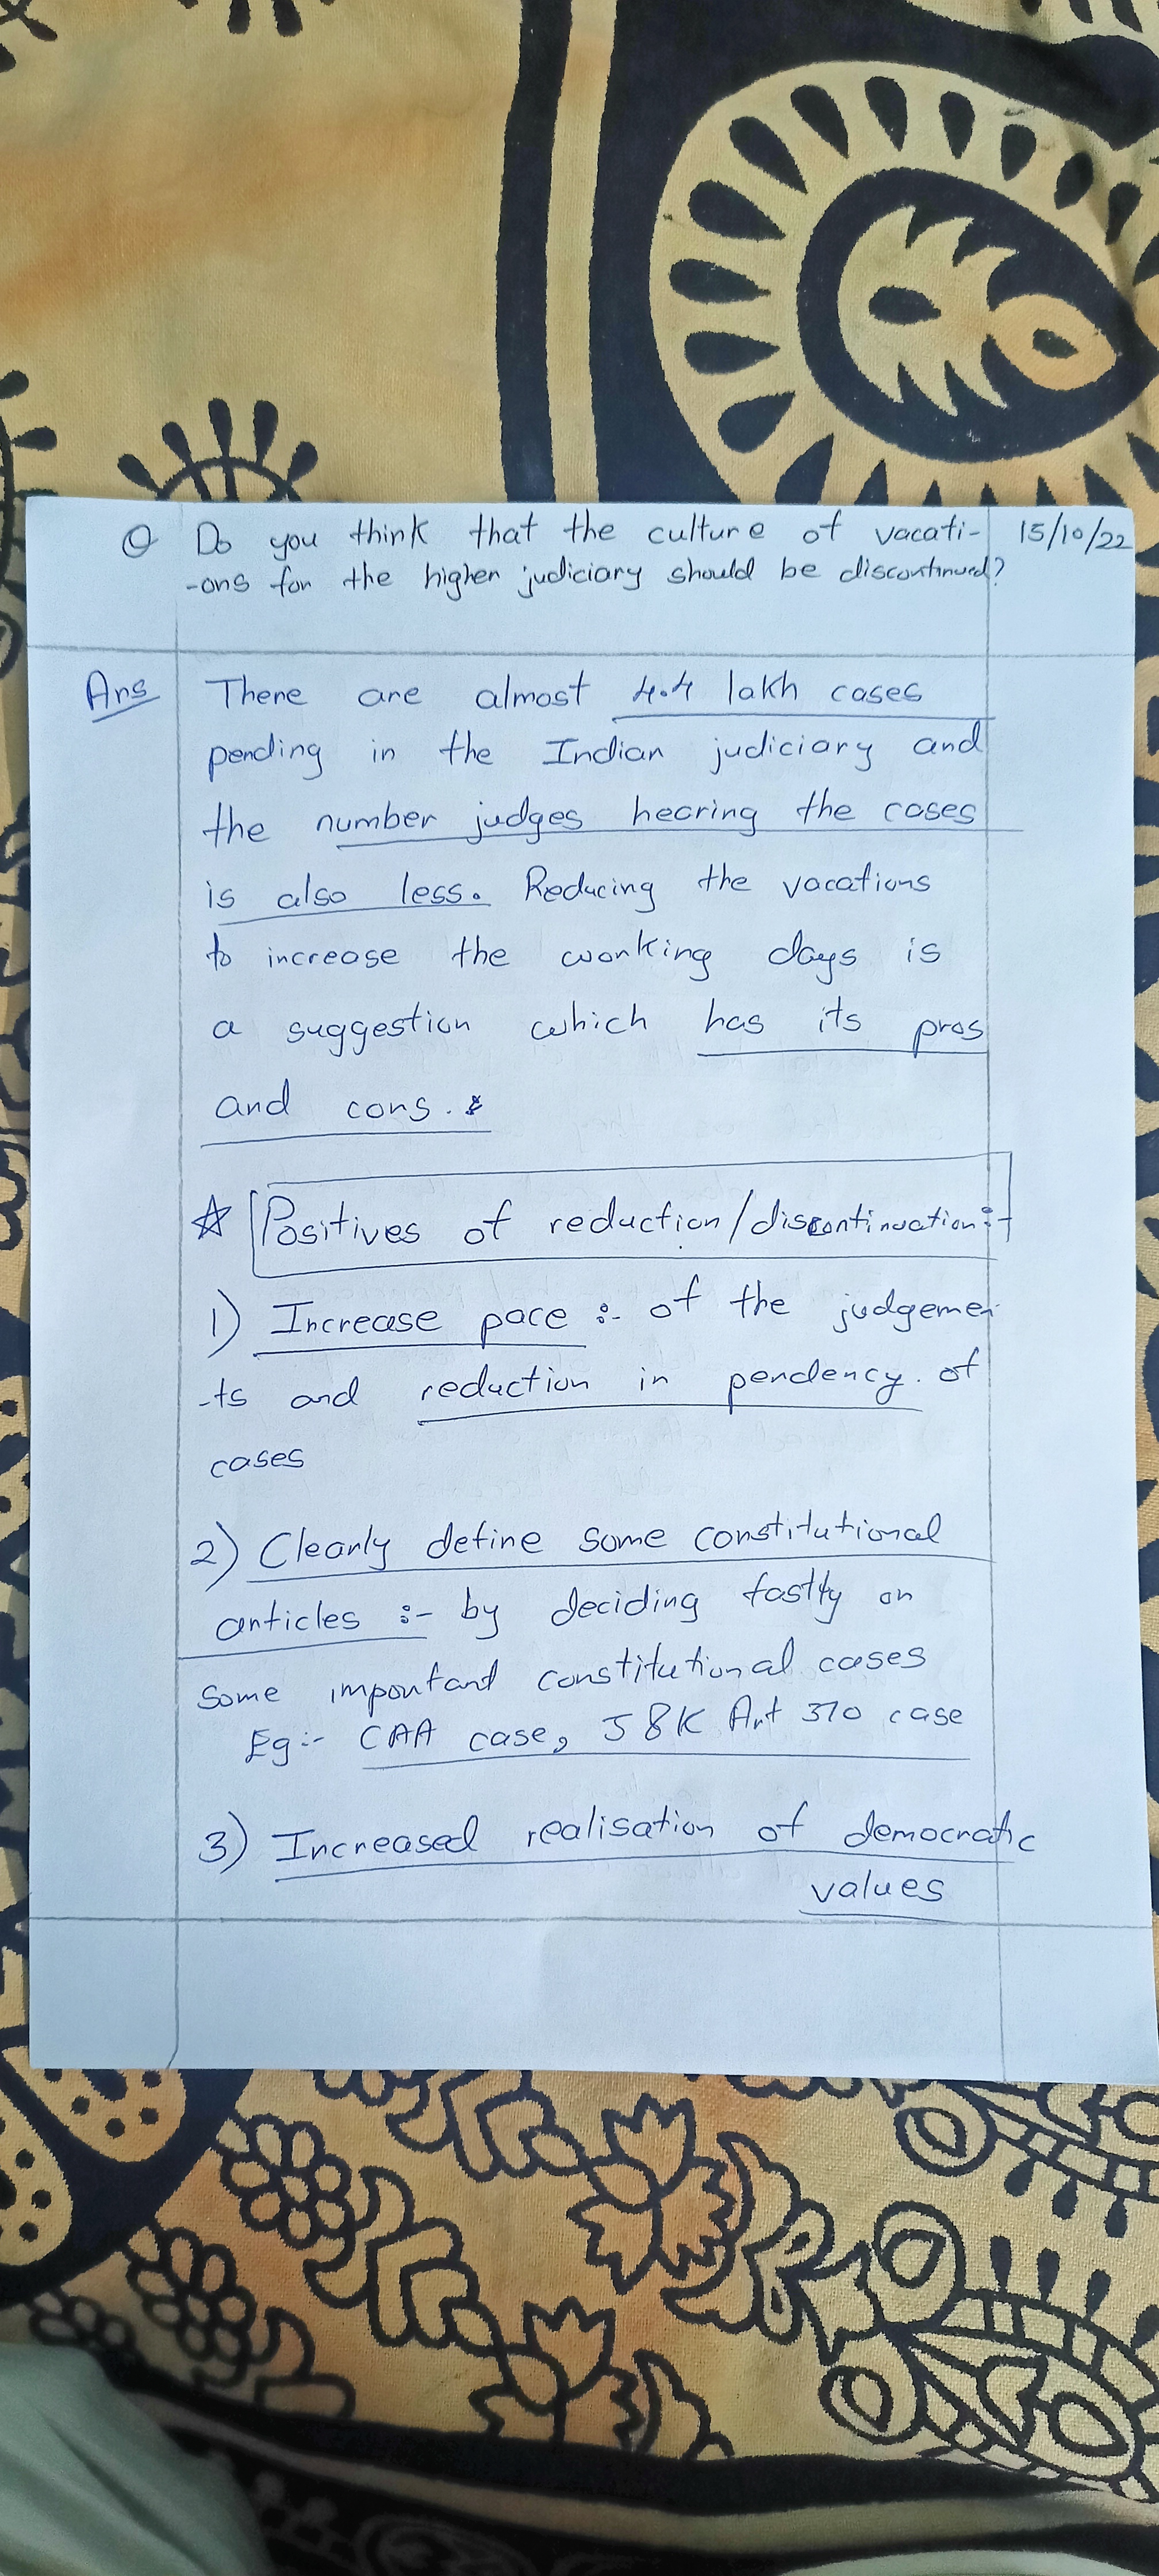 Q Do you think that the culture of vacati- 15/10/22
-ons for the higher judiciary should be discontinued?
Ans There are almost 4.4 lakh cases
pending in the Indian judiciary and
the number judges hearing the cases
is also less. Reducing the vacations
to increase the working days is
a suggestion which has its pros
and cons.
☆ Positives of reduction/discontinuation:-
1) Increase pace :- of the judgemen
-ts and reduction in pendency. of
cases
2) Clearly define some constitutional
articles :- by deciding fastly on
some important constitutional cases
Eg:- CAA case, J&K Art 370 case
3) Increased realisation of democratic
values